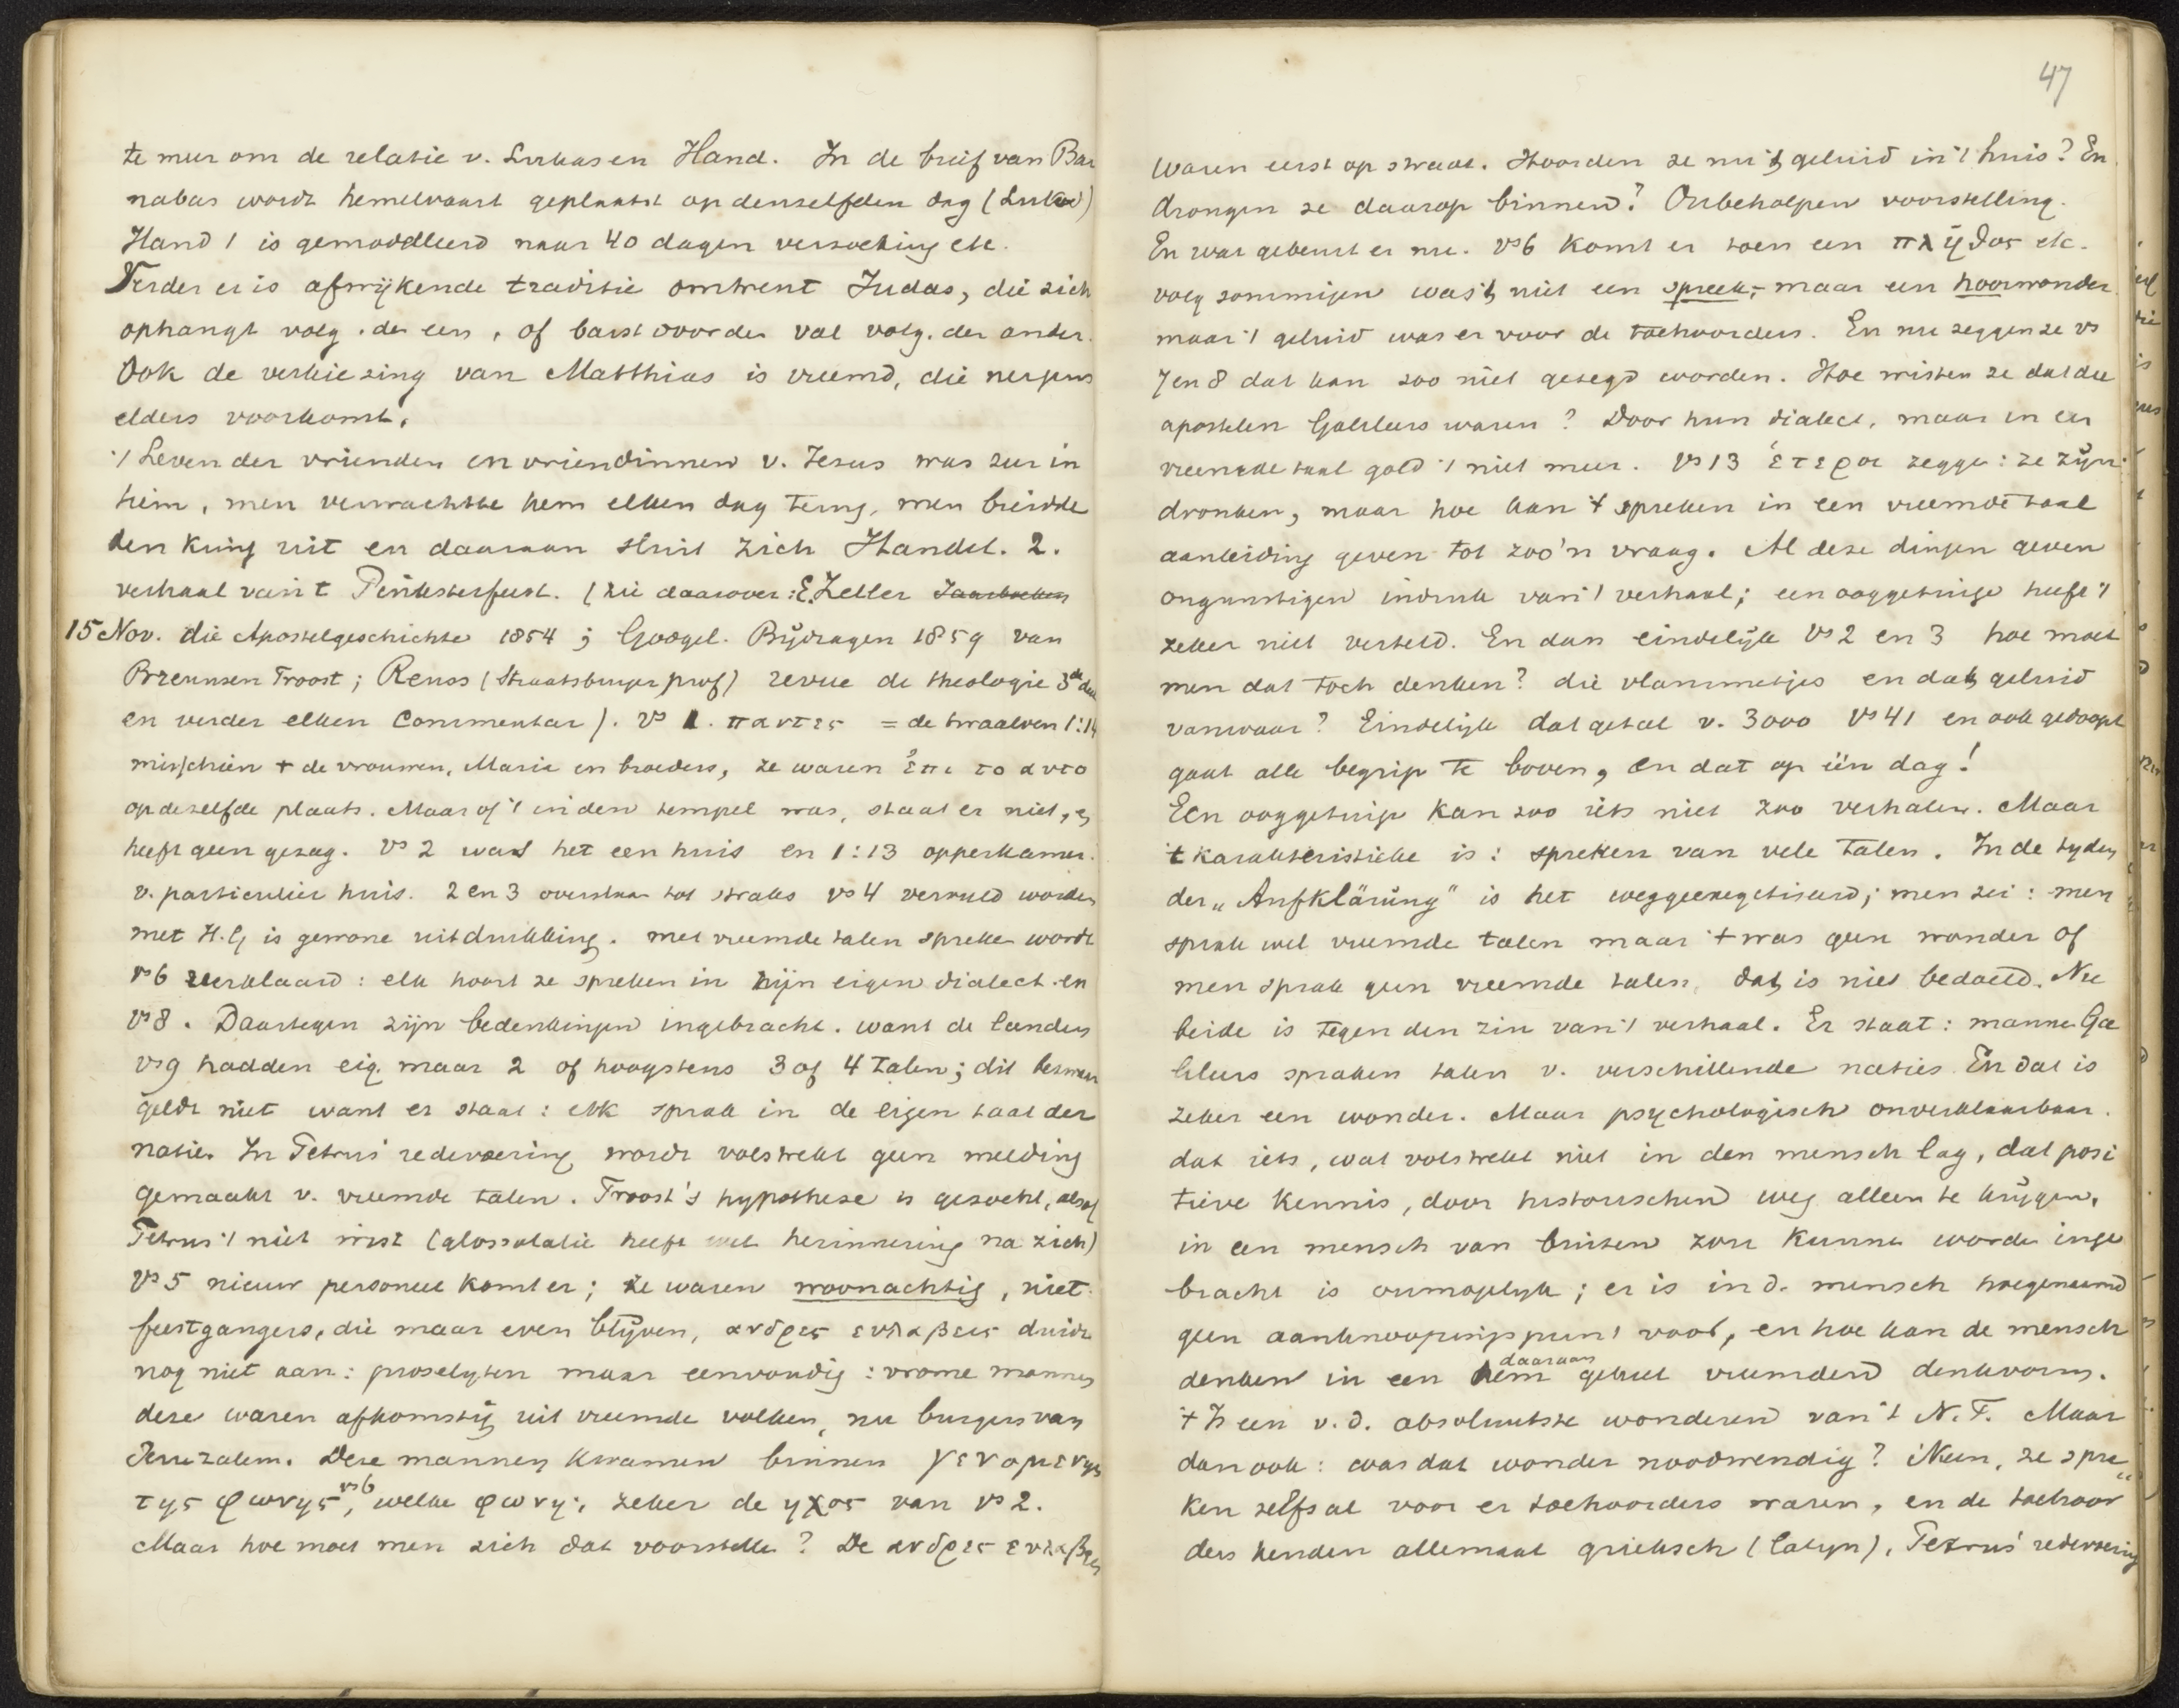 te meer om de relatie v. Lukas en Hand. In de brief van Bar
nabas wordt hemelvaart geplaatst op denzelfden dag (Lukas)
Hand 1 is gemodelleerd naar 40 dagen verzoeking etc.
Verder er is afwijkende traditie omtrent Judas, die zich
ophangt volg. de een, of barst door den val volg. den ander.
Ook de verkiezing van Matthias is vreemd, die nergens
elders voorkomt.
't Leven der vrienden en vriendinnen v. Jezus was zeer in
hem, men verwachtte hem elken dag terug, men breidde
den kring uit en daaraan sluit zich Handel. 2.
verhaal van 't Pinksterfeest. (zie daarover: E. Zeller Jaarboeken
15 Nov. die Apostelgeschichte 1854; Gorgel. Bijdragen 1859 van
Brzeunsen Troost; Reuss (Straatsburger prof) revue de theologie 3de deel
en verder elken Commentar). vs 1. παντες = de twaalven 1:14
misschien + de vrouwen, Maria en broeders, ze waren ἐπι το αυτο
op dezelfde plaats. Maar of 't in den tempel was, staat er niet, en
heeft geen gezag. vs 2 was het een huis en 1:13 opperkamer.
v. particulier huis. 2 en 3 overslaan tot straks vs 4 vervuld worden
met H.G is gewone uitdrukking. met vreemde talen spreken wordt
vs 6 verklaard: elk hoort ze spreken in zijn eigen dialect en
vs 8. Daartegen zijn bedenkingen ingebracht. want de landen
vs 9 hadden eig. maar 2 of hoogstens 3 of 4 talen; dit bezwaar
geldt niet want er staat: elk sprak in de eigen taal der
natie. In Petrus' redevoering wordt volstrekt geen melding
gemaakt v. vreemde talen. Troost's hypothese is gezocht, alsof
Petrus 't niet wist (glossolalie heeft wel herinnering na zich)
vs 5 nieuw personeel komt er; ze waren woonachtig, niet
feestgangers, die maar even blijven, ανδρες ευλαβεις duidt
nog niet aan: proselyten maar eenvoudig: vrome mannen
deze waren afkomstig uit vreemde volken, nu burgers van
Jeruzalem. Deze mannen kwamen binnen γενομενης
της φωνης vs 6, welke φωνη; zeker de ηχος van vs 2.
Maar hoe moet men zich dat voorstellen? De ανδρες ευλαβεις
47
waren eerst op straat. Hoorden ze nu 't geluid in 't huis? En
drongen ze daarop binnen? Onbeholpen voorstelling.
En wat gebeurt er nu. vs 6 komt er toen een πληθος etc.
volg sommigen was 't niet een spreek- maar een hoorwonder
maar 't geluid was er voor de toehoorders. En nu zeggen ze vs
7 en 8 dat kan zoo niet gezegd worden. Hoe wisten ze dat die
apostelen Galileers waren? Door hun dialect, maar in een
vreemde taal gold 't niet meer. vs 13 ἑτεροι zegge: ze zijn
dronken, maar hoe kan 't spreken in een vreemde taal
aanleiding geven tot zoo'n vraag. Al deze dingen geven
ongunstigen indruk van 't verhaal; een ooggetuige heeft 't
zeker niet verteld. En dan eindelijk vs 2 en 3 hoe moet
men dat toch denken? die vlammetjes en dat geluid
vanwaar? Eindelijk dat getal v. 3000 vs 41 en ook gedoopt
gaat alle begrip te boven, en dat op één dag!
Een ooggetuige kan zoo iets niet zoo verhalen. Maar
't karakteristieke is: spreken van vele talen. In de tyden
der „Aufklärung" is het weggeexegetiseerd; men zei: men
sprak wel vreemde talen maar 't was geen wonder of
men sprak geen vreemde talen, dat is niet bedoeld. Nu
beide is tegen den zin van 't verhaal. Er staat: mannen Ga
lileers spraken talen v. verschillende naties En dat is
zeker een wonder. Maar psychologisch onverklaarbaar.
dat iets, wat volstrekt niet in den mensch lag, dat posi
tieve kennis, door historischen weg alleen te krijgen,
in een mensch van buiten zou kunnen worden inge
bracht is onmogelijk; er is in d. mensch hoegenaamd
geen aanknoopingspunt voor, en hoe kan de mensch
denken in een hem daaraan geheel vreemden denkvorm.
't Is een v.d. absoluutste wonderen van 't N.T. Maar
dan ook: was dat wonder noodwendig? Neen, ze spra"
ken zelfs al voor er toehoorders waren, en de toehoor
ders kenden allemaal grieksch (latyn), Petrus' redevoering